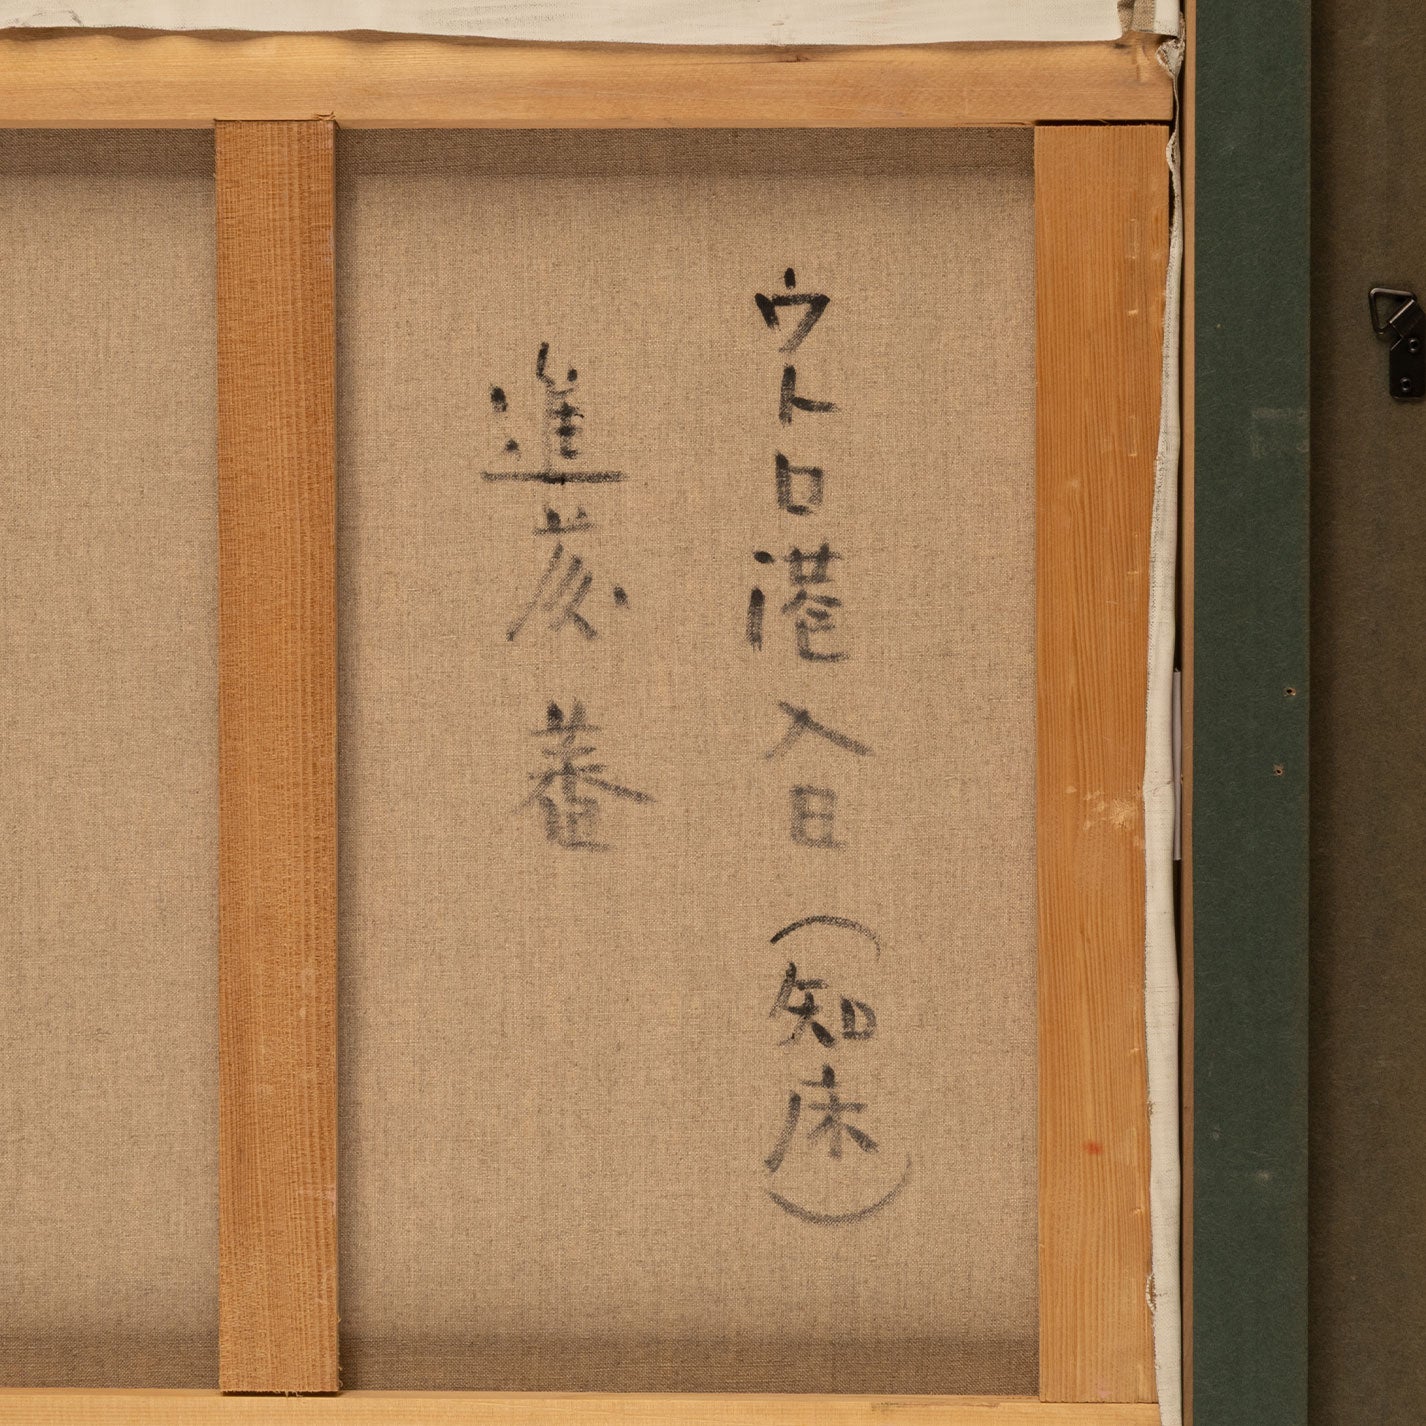 ウトロ港入日（知床）
進藤蕃